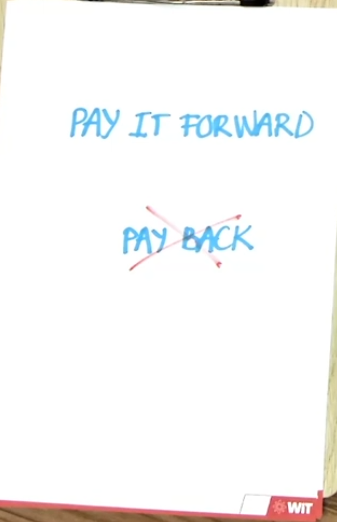 PAY IT FORWARD
PAY BACK
WIT